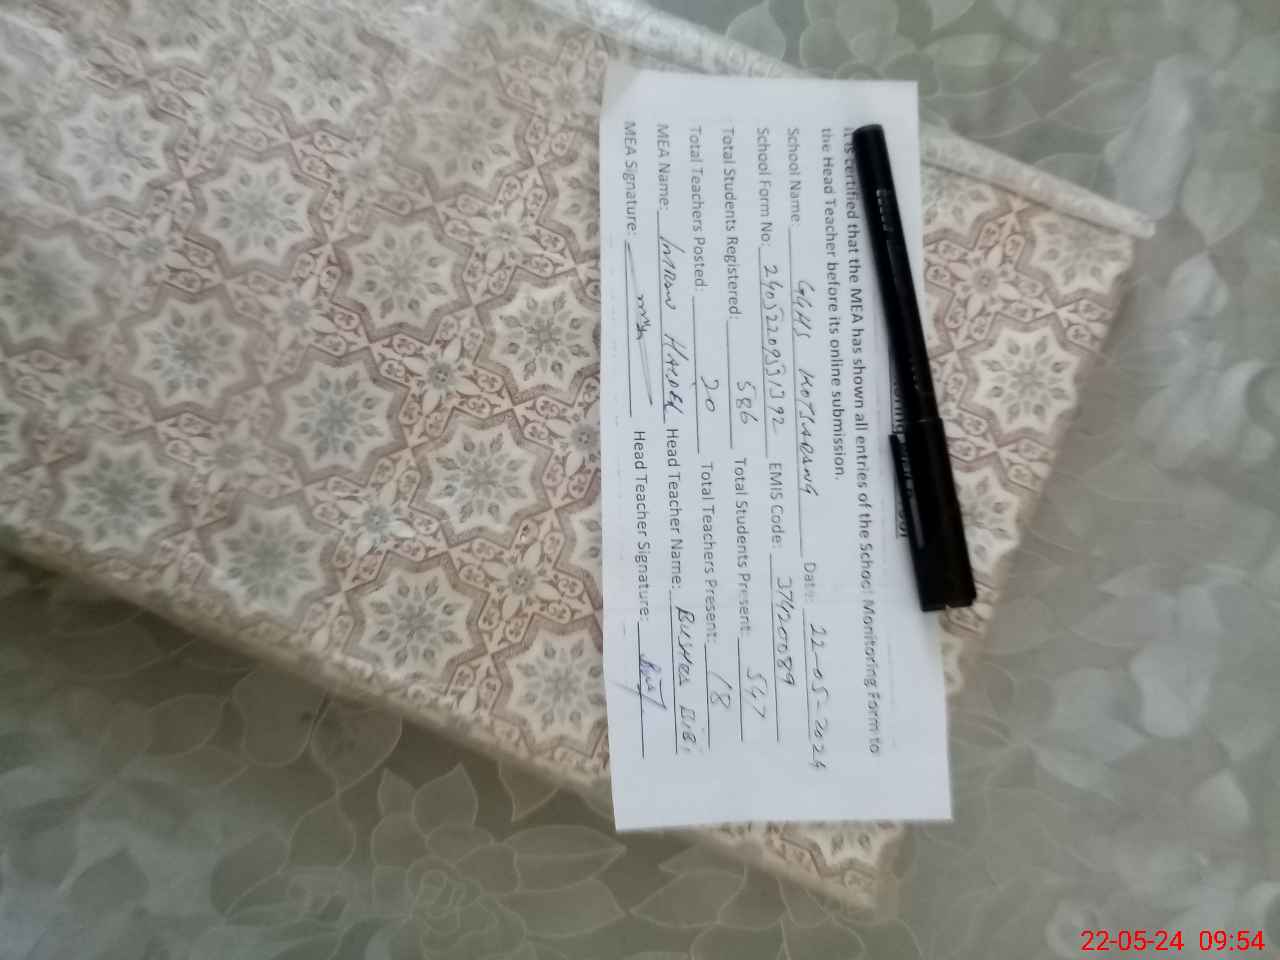 It is certified that the MEA has shown all entries of the School Monitoring Form to
the Head Teacher before its online submission.
School Name: GGHS KOTSARANG Date: 22-05-2024
School Form No: EMIS Code: 37420089
Total Students Registered: 586 Total Students Present: 547
Total Teachers Posted: 20 Total Teachers Present: 18
MEA Name: IMRAN HAIDER Head Teacher Name: BUSHRA BIBI
MEA Signature: Head Teacher Signature:
22-05-24 09:54